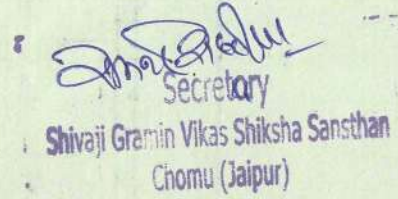 Secretary
Shivaji Gramin Vikas Shiksha Sansthan
Chomu (Jaipur)